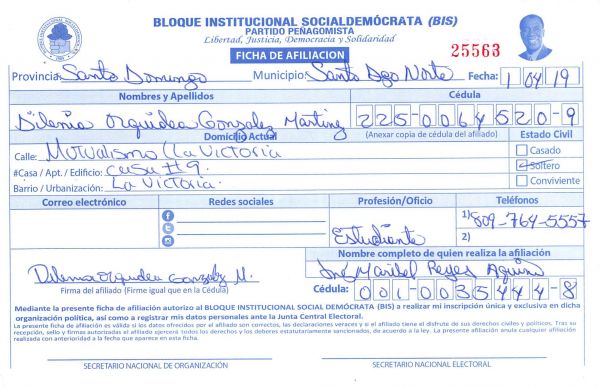 BLOQUE INSTITUCIONAL SOCIALDEMÓCRATA (BIS)
PARTIDO PEÑAGOMISTA
Libertad, Justicia, Democracia y Solidaridad
FICHA DE AFILIACION
25563
Provincia: Santo Domingo Municipio: Santo Dgo Norte Fecha: 1 04 19
Nombres y Apellidos Cédula
Dilenia Orquidea Gonzalez Martinez 225-0064520-9
Domicilio Actual (Anexar copia de cédula del afiliado) Estado Civil
Calle: Mutualismo (La Victoria Casado
#Casa / Apt. / Edificio: casa #9. Soltero
Barrio / Urbanización: La Victoria. Conviviente
Correo electrónico Redes sociales Profesión/Oficio Teléfonos
Estudiante 1) 809-764-5557
2)
Nombre completo de quien realiza la afiliación
Dilenia Orquidea Gonzalez M. Ing Maribel Reyes Aquino
Firma del afiliado (Firme igual que en la Cédula) Cédula: 001-0035444-8
Mediante la presente ficha de afiliación autorizo al BLOQUE INSTITUCIONAL SOCIAL DEMÓCRATA (BIS) a realizar mi inscripción única y exclusiva en dicha
organización política, así como a registrar mis datos personales ante la Junta Central Electoral.
La presente ficha de afiliación es válida si los datos ofrecidos por el afiliado son correctos, las declaraciones veraces y si el afiliado tiene el disfrute de sus derechos civiles y políticos. Tras su
recepción, sello y firmas autorizadas el afiliado ejercerá todos los derechos y los deberes estatutariamente sancionados, de acuerdo a la ley. La presente afiliación anula cualquier afiliación
realizada con anterioridad a la fecha que aparece en esta ficha.
SECRETARIO NACIONAL DE ORGANIZACIÓN SECRETARIO NACIONAL ELECTORAL